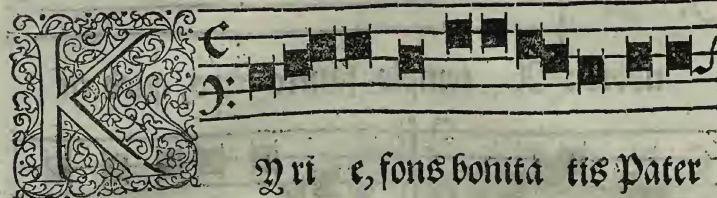 K
Y ri e, fons bonita tis Pater